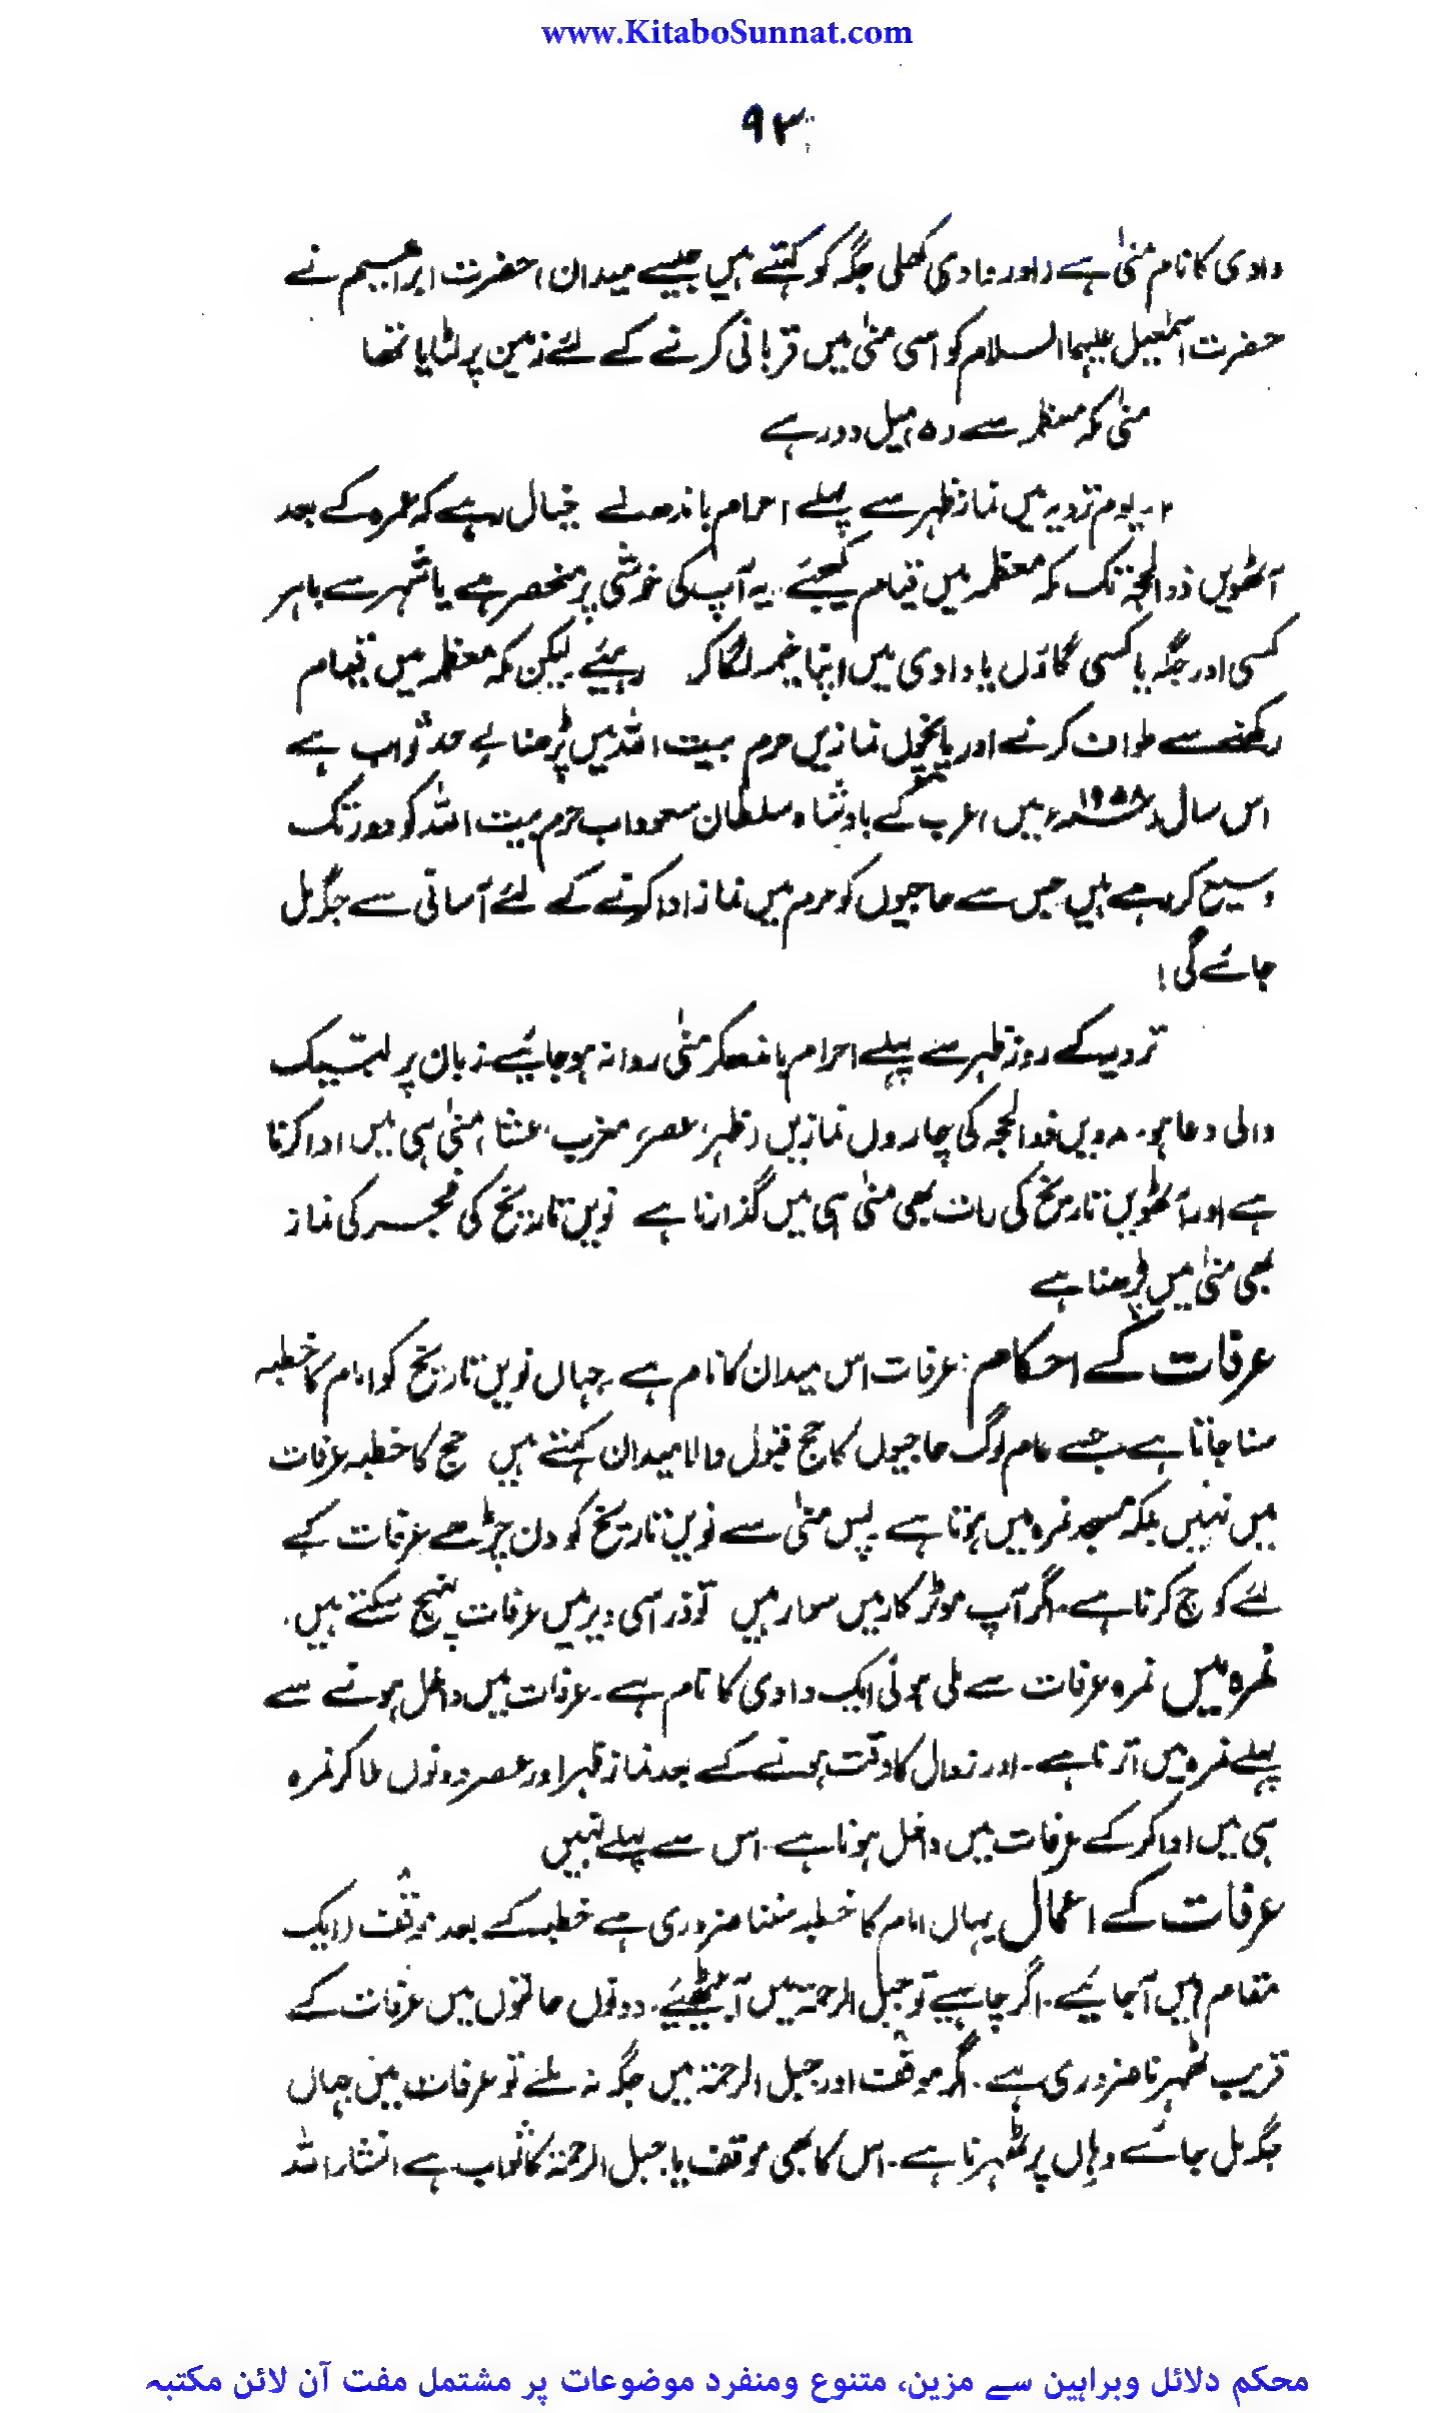 www.KitaboSunnat.com
۹۳
وادی کا نام منیٰ ہے (اور وادی کھلی جگہ کو کہتے ہیں جیسے میدان) حضرت ابراہیم نے
حضرت اسمٰعیل علیہما السلام کو اسی منیٰ میں قربانی کرنے کے لئے زمین پر لٹایا تھا
منیٰ مکہ معظمہ سے (۵) میل دور ہے
۲۔ یوم ترویہ میں نماز ظہر سے پہلے احرام باندھ لے خیال رہے کہ عمرہ کے بعد
آٹھویں ذوالحجۃ تک مکہ معظمہ میں قیام کیجئے۔ یہ آپ کی خوشی پر منحصر ہے یا شہر سے باہر
کسی اور جگہ یا کسی گاؤں یا وادی میں اپنا خیمہ لگا کر رہیئے لیکن مکہ معظمہ میں قیام
رکھنے سے طواف کرنے اور پانچوں نمازیں حرم بیت اللہ میں پڑھنا بے حد ثواب ہے
اس سال (۱۹۵۸ء میں) عرب کے بادشاہ سلطان سعود اب حرم بیت اللہ کو دور تک
وسیع کر رہے ہیں جس سے حاجیوں کو حرم میں نماز ادا کرنے کے لئے آسانی سے جگہ مل
جائے گی!
ترویہ کے روز ظہر سے پہلے احرام باندھکر منیٰ روانہ ہو جائیے زبان پر لبّیک
والی دعا ہو۔ ۸ویں ذوالحجہ کی چاروں نمازیں (ظہر، عصر، مغرب، عشا) منیٰ ہی میں ادا کرنا
ہے اور آٹھویں تاریخ کی رات بھی منیٰ ہی میں گذارنا ہے نویں تاریخ کی فجر کی نماز
بھی منیٰ میں پڑھنا ہے
عرفات کے احکام: عرفات اس میدان کا نام ہے جہاں نویں تاریخ کو امام کا خطبہ
سنا جاتا ہے جسے عام لوگ حاجیوں کا حج قبول والا میدان کہتے ہیں حج کا خطبہ عرفات
میں نہیں بلکہ مسجد نمرہ میں ہوتا ہے پس منیٰ سے نویں تاریخ کو دن چڑھے عرفات کے
لئے کوچ کرنا ہے۔ اگر آپ موٹر کار میں سوار ہیں تو ذرا سی دیر میں عرفات پہنچ سکتے ہیں۔
نمرہ میں نمرہ عرفات سے ملی ہوئی ایک وادی کا نام ہے۔ عرفات میں داخل ہونے سے
پہلے نمرہ میں اترنا ہے۔ اور زوال کا وقت ہونے کے بعد نماز ظہر اور عصر دونوں ملا کر نمرہ
ہی میں ادا کر کے عرفات میں داخل ہونا ہے۔ اس سے پہلے نہیں
عرفات کے اعمال یہاں امام کا خطبہ سننا ضروری ہے خطبہ کے بعد موقف (ایک
مقام) میں آجائیے۔ اگر چاہیے تو جبل الرحمۃ میں آ بیٹھیئے۔ دونوں حالتوں میں عرفات کے
قریب ٹھہرنا ضروری ہے۔ اگر موقف اور جبل الرحمۃ میں جگہ نہ ملے تو عرفات میں جہاں
جگہ مل جائے وہاں پر ٹھہرنا ہے۔ اس کا بھی موقف یا جبل الرحمۃ کا ثواب ہے انشاء اللہ
محکم دلائل وبراہین سے مزین، متنوع ومنفرد موضوعات پر مشتمل مفت آن لائن مکتبہ